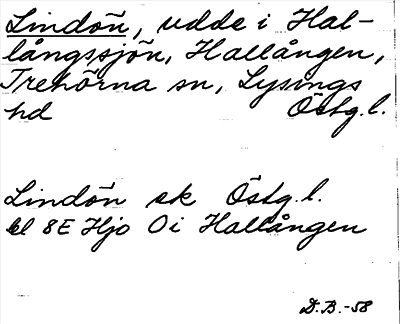 Lindön, udde i Hal-
långssjön, Hallången,
Trehörna sn, Lysings
hd Östg.l.
Lindön sk Östg.l.
bl 8E Hjo Öi Hallången
D.B.-58